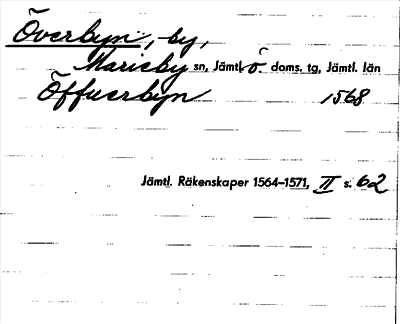 Överbyn, by,
Marieby sn, Jämtl. ö. doms. tg, Jämtl. län
Öffuerbyn 1568
Jämtl. Räkenskaper 1564–1571, II s. 62